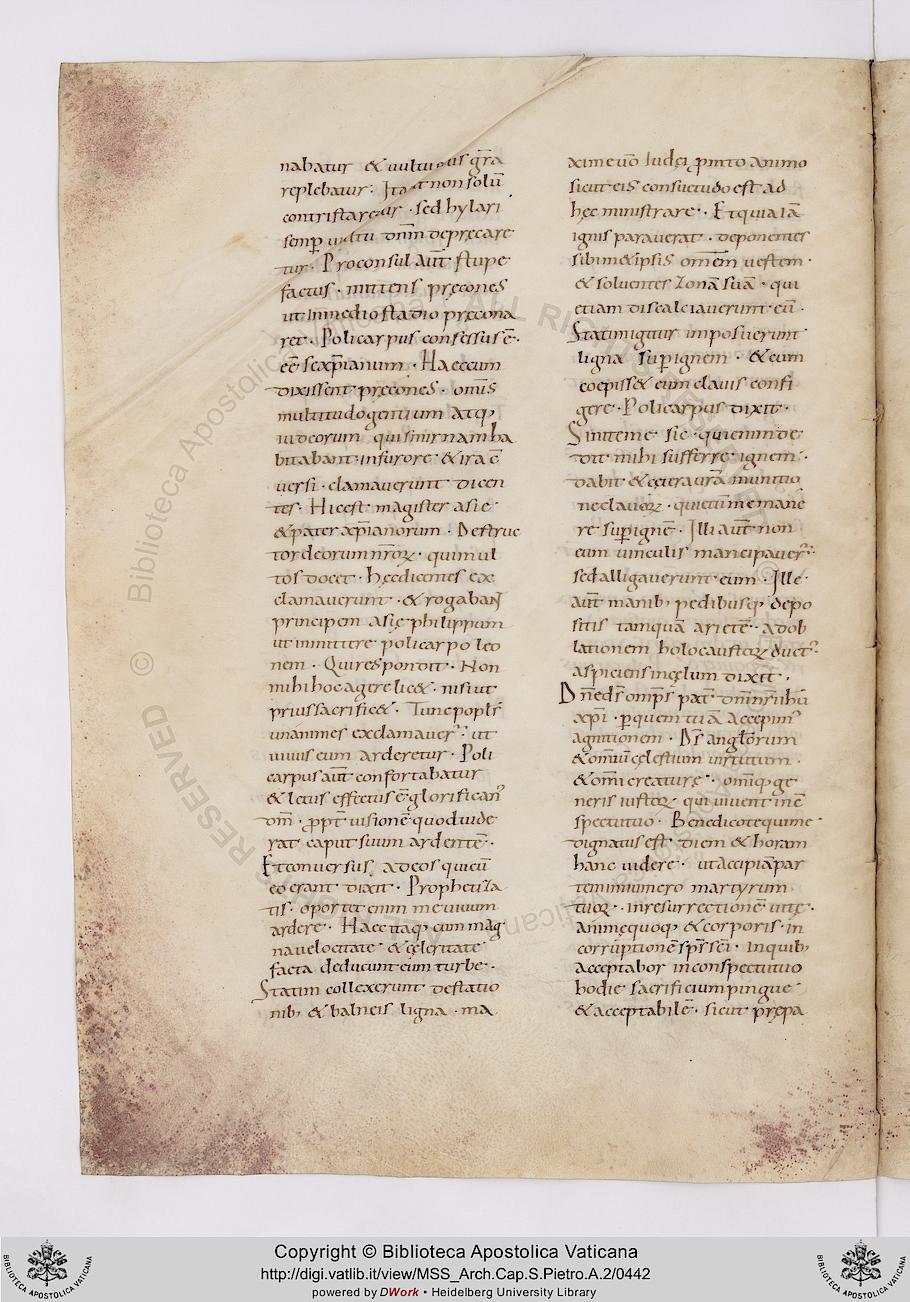 nabatur & uultus eius gr̄a
replebatur· Ita ut non solū
contristaretur · sed hylari
semp̲ uultu dn̄m deprecare
tur· Proconsul aūt stupe
factus · mittens pręcones
ut in medio stadio pręcona
ret· Policarpus confessus ē·
eē se xp̄ianum · Haec cum
dixissent pręcones · omīs
multitudo gentium atq;
iudeorum qui smirnam ha
bitabant· in furore & ira ē
uersi · clamauerunt dicen
tes· Hic est magister asię
& pater xp̄ianorum · Destruc
tor deorum nr̄oꝝ · qui mul
tos docet· hęc dicentes ex
clamauerunt · & rogabant
principem asię philippum
ut inmitteret policarpo leo
nem · Qui respondit · Non
mihi hoc agere lic& · nisi ut
prius sacrific& · Tunc popl̄s
unanimes exclamauer̄ · ut
uiuus eum arderetur · Poli
carpus aūt confortabatur
& letus effectus ē· glorifican̄
dm̄ · ꝓpt̄ uisionē quod uide
rat caput suum ardentē·
Et conuersus ad eos qui cū
eo erant dixit · Propheti za
tis· oportet enim me uiuum
ardere· Haec itaq; cum mag
na uelocitate & celeritate
facta deducunt eum turbe·
Statim collexerunt de statio
nib; & balneis ligna · ma
xime uō Iudei ꝓmto animo
sicut eis consuetudo est ad
hęc ministrare· Et quia iā
ignis parauerat · deponentes
sibim& ipsis omēm uestem ·
& soluentes zonā suā · qui
etiam discalciauerunt eū·
Statim igitur imposuerunt
ligna sup̲ ignem · & cum
coepiss& eum clauis confi
gere · Policarpus dixit·
Sinite me sic · qui enim de
dit mihi sufferre ignem·
dabit & citra urā munitio
ne clauoꝝ · quietū me mane
re sup̲ ignē · Illi aūt non
eum uinculis mancipauer̄·
sed alligauerunt eum · Ille·
aūt manib; pedibusq; depo
sitis tamquā arietē· ad ob
lationem holocaustoꝝ duct̄·
aspiciens in cęlum dixit ·
Dn̄e ds̄ omps̄ pat̄ dn̄i nr̄i ihū
xpi · p̲ quem tuā accepim̄
agnitionem · Ds̄ angl̄orum
& omniū cęlestium uirtutum ·
& omī creaturę · omīq; ge
neris iustoꝝ qui uiuent in ē
spectu tuo · Benedico te qui me
dignatus est· diem & horam
hanc uidere· ut accipiā par
tem in numero martyrum
tuoꝝ · in resurrectionē uitę·
animę quoq; & corporis · in
corruptione sp̄r sc̄i · in quib;
acceptabor in conspectu tuo
hodie sacrificium pingue
& acceptabilē · sicut prępa
Copyright © Biblioteca Apostolica Vaticana
http://digi.vatlib.it/view/MSS_Arch.Cap.S.Pietro.A.2/0442
powered by DWork • Heidelberg University Library
BIBLIOTECA APOSTOLICA VATICANA
BIBLIOTECA APOSTOLICA VATICANA